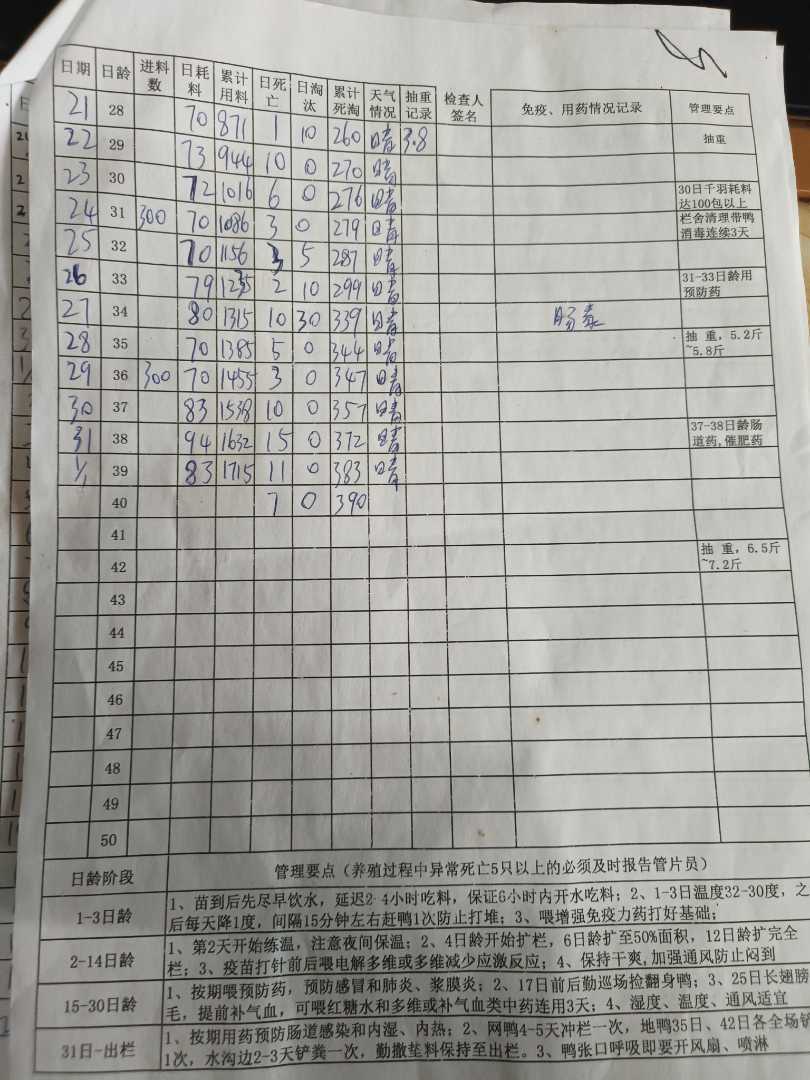 日期 日龄 进料数 日耗料 累计用料 日死亡 日淘汰 累计死淘 天气情况 抽重记录 检查人签名 免疫、用药情况记录 管理要点
21 28 70 871 1 10 260 晴 3.8 抽重
22 29 73 944 10 0 270 晴
23 30 72 1016 6 0 276 晴 30日千羽耗料达100包以上
24 31 300 70 1086 3 0 279 晴 栏舍清理带鸭消毒连续3天
25 32 70 1156 3 5 287 晴
26 33 79 1235 2 10 299 晴 31-33日龄用预防药
27 34 80 1315 10 30 339 晴 肠毒
28 35 70 1385 5 0 344 晴 抽 重，5.2斤~5.8斤
29 36 300 70 1455 3 0 347 晴
30 37 83 1538 10 0 357 晴
31 38 94 1632 15 0 372 晴 37-38日龄肠道药,催肥药
1/1 39 83 1715 11 0 383 晴
40 7 0 390
41
42 抽 重，6.5斤~7.2斤
43
44
45
46
47
48
49
50
日龄阶段 管理要点（养殖过程中异常死亡5只以上的必须及时报告管片员）
1-3日龄 1、苗到后先尽早饮水，延迟2-4小时吃料，保证6小时内开水吃料；2、1-3日温度32-30度，之
后每天降1度，间隔15分钟左右赶鸭1次防止打堆；3、喂增强免疫力药打好基础；
2-14日龄 1、第2天开始练温，注意夜间保温；2、4日龄开始扩栏，6日龄扩至50%面积，12日龄扩完全
栏；3、疫苗打针前后喂电解多维或多维减少应激反应；4、保持干爽,加强通风防止闷到
15-30日龄 1、按期喂预防药，预防感冒和肺炎、浆膜炎；2、17日前后勤巡场捡翻身鸭；3、25日长翅膀
毛，提前补气血，可喂红糖水和多维或补气血类中药连用3天；4、湿度、温度、通风适宜
31日-出栏 1、按期用药预防肠道感染和内湿、内热；2、网鸭4-5天冲栏一次，地鸭35日、42日各全场铲
1次，水沟边2-3天铲粪一次，勤撒垫料保持至出栏。3、鸭张口呼吸即要开风扇、喷淋